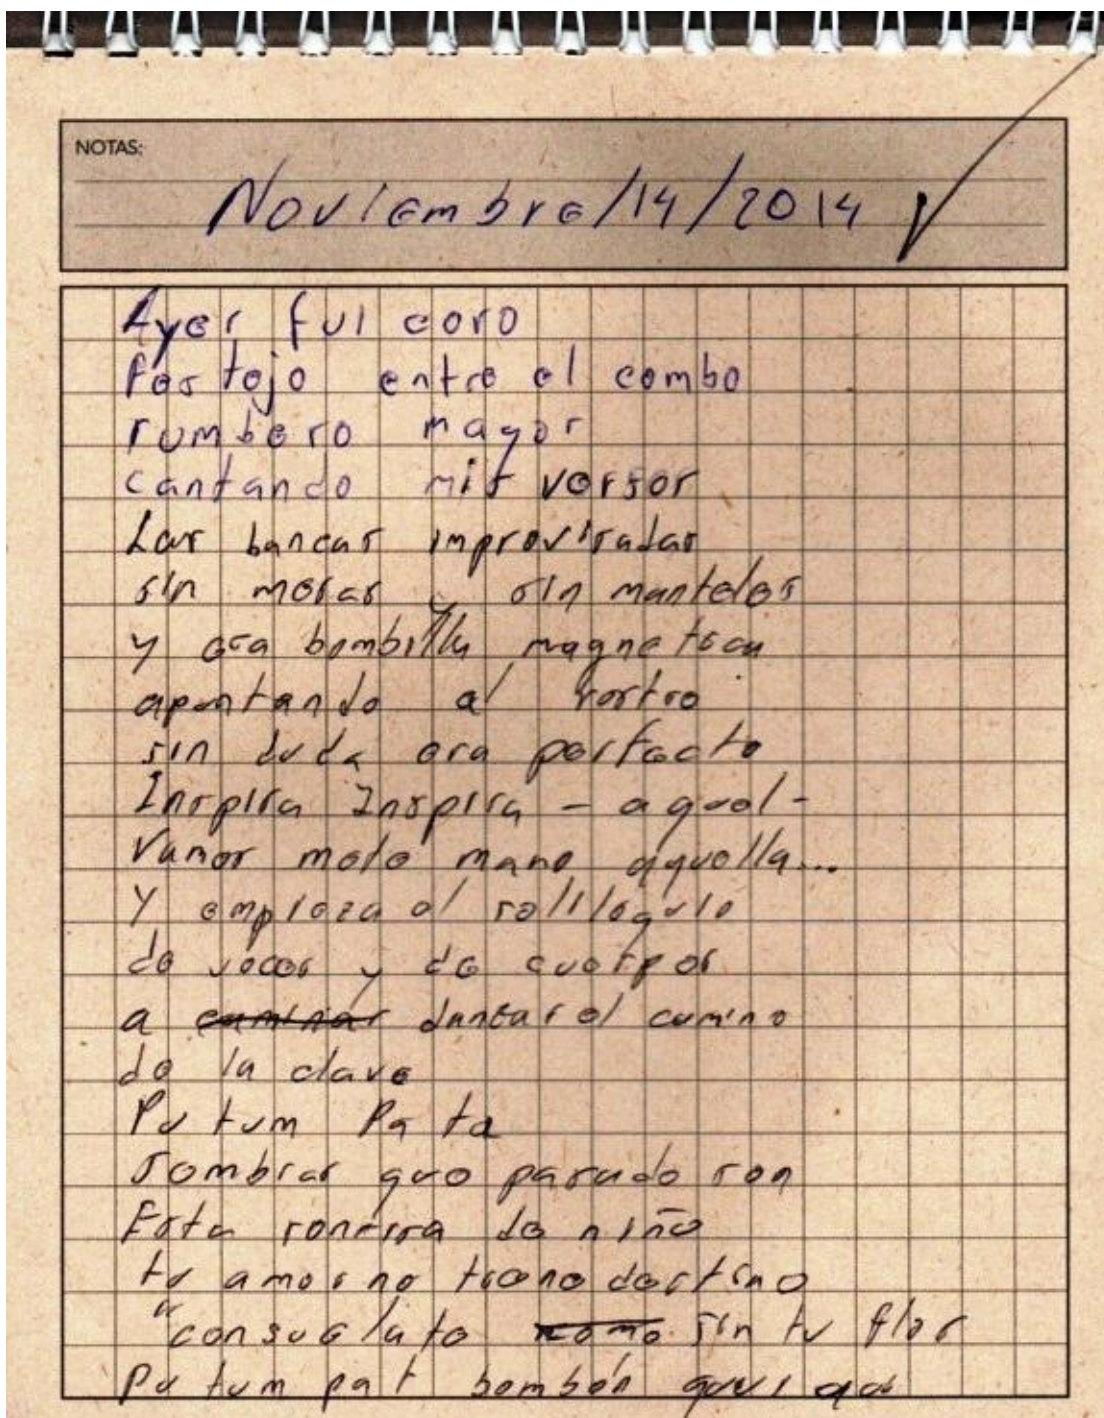 NOTAS:
Noviembre/14/2014
Ayer fui coro
festejo entre el combo
rumbero mayor
cantando mis versos
Las bancas improvisadas
sin mesas y sin manteles
y esa bombilla magnetica
apuntando al rostro
sin duda era perfecto
Inspira Inspira - aquel -
Vamos mete mano aquella...
Y empieza el
de voces y de cuerpos
a caminar danzar el camino
de la clave
Pu tum Pa ta
Sombras que pasado son
Esta sonrisa de niño
tu amor no tiene destino
"consuelate como sin tu flor
Pu tum pat bombón